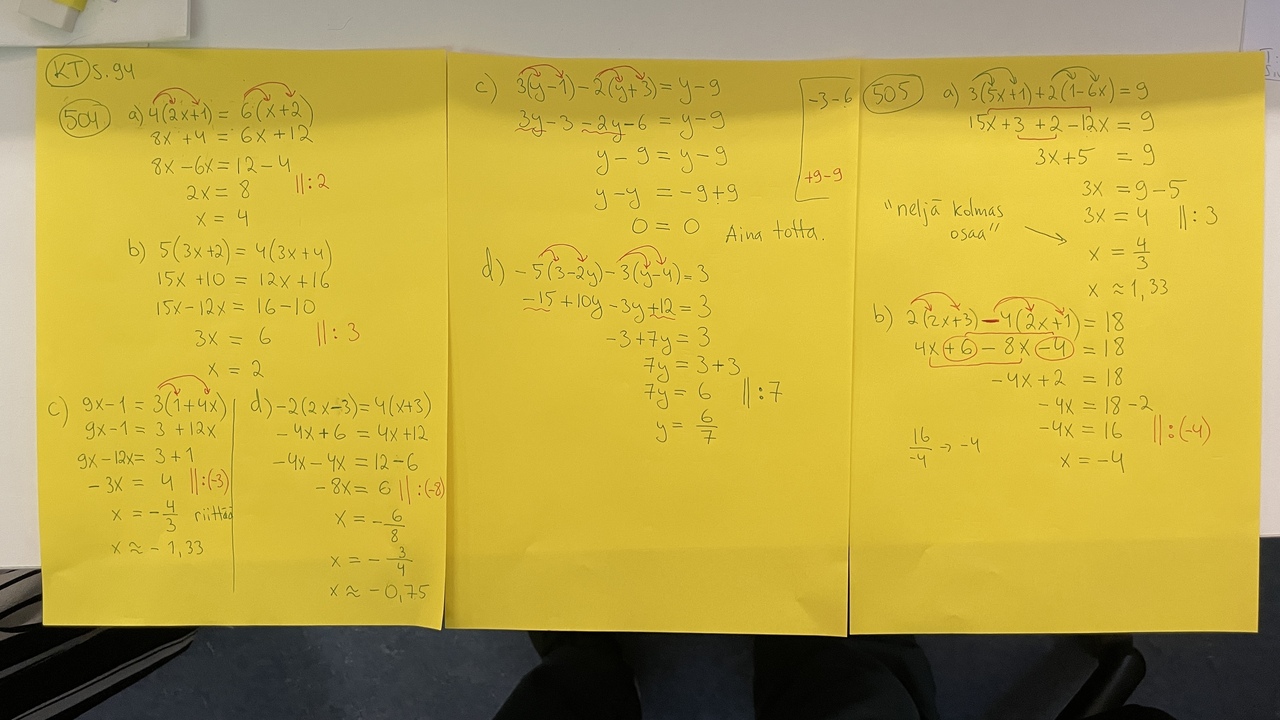 KT s. 94
504
a) 4(2x+1) = 6(x+2)
8x +4 = 6x +12
8x -6x = 12 - 4
2x = 8 ||:2
x = 4
b) 5(3x+2) = 4(3x+4)
15x +10 = 12x +16
15x -12x = 16 -10
3x = 6 ||: 3
x = 2
c) 9x-1 = 3(1+4x)
9x-1 = 3 +12x
9x -12x = 3 +1
-3x = 4 ||:(-3)
x = -4/3 riittää
x ≈ - 1,33
d) -2(2x-3) = 4(x+3)
-4x +6 = 4x +12
-4x -4x = 12 -6
-8x = 6 ||:(-8)
x = -6/8
x = -3/4
x ≈ -0,75
c) 3(y-1) -2(y+3) = y -9
3y -3 -2y -6 = y -9
y - 9 = y -9
y -y = -9 +9
0 = 0 Aina totta.
-3 -6
+9 -9
d) -5(3-2y) -3(y-4) = 3
-15 +10y -3y +12 = 3
-3 +7y = 3
7y = 3+3
7y = 6 ||:7
y = 6/7
505
a) 3(5x+1) +2(1-6x) = 9
15x +3 +2 -12x = 9
3x +5 = 9
3x = 9 -5
3x = 4 ||: 3
"neljä kolmas
osaa"
x = 4/3
x ≈ 1,33
b) 2(2x+3) -4(2x+1) = 18
4x +6 - 8x -4 = 18
-4x +2 = 18
-4x = 18 -2
-4x = 16 ||:(-4)
16/-4 → -4
x = -4